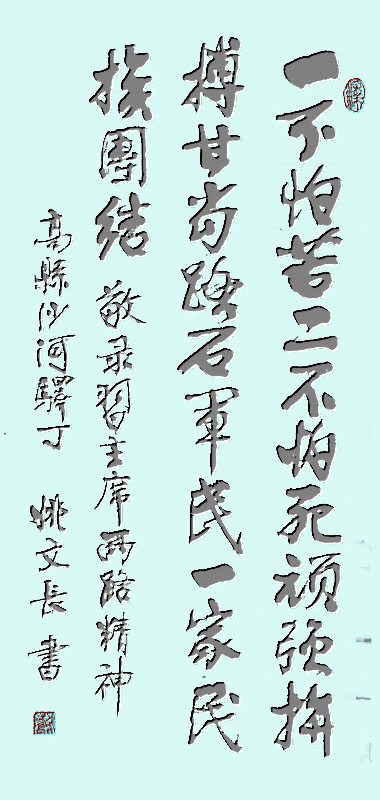 一不怕苦二不怕死顽强拼
搏甘當路石軍民一家民
族團结 敬录習主席两路精神
高縣沙河驛丁 姚文長 書